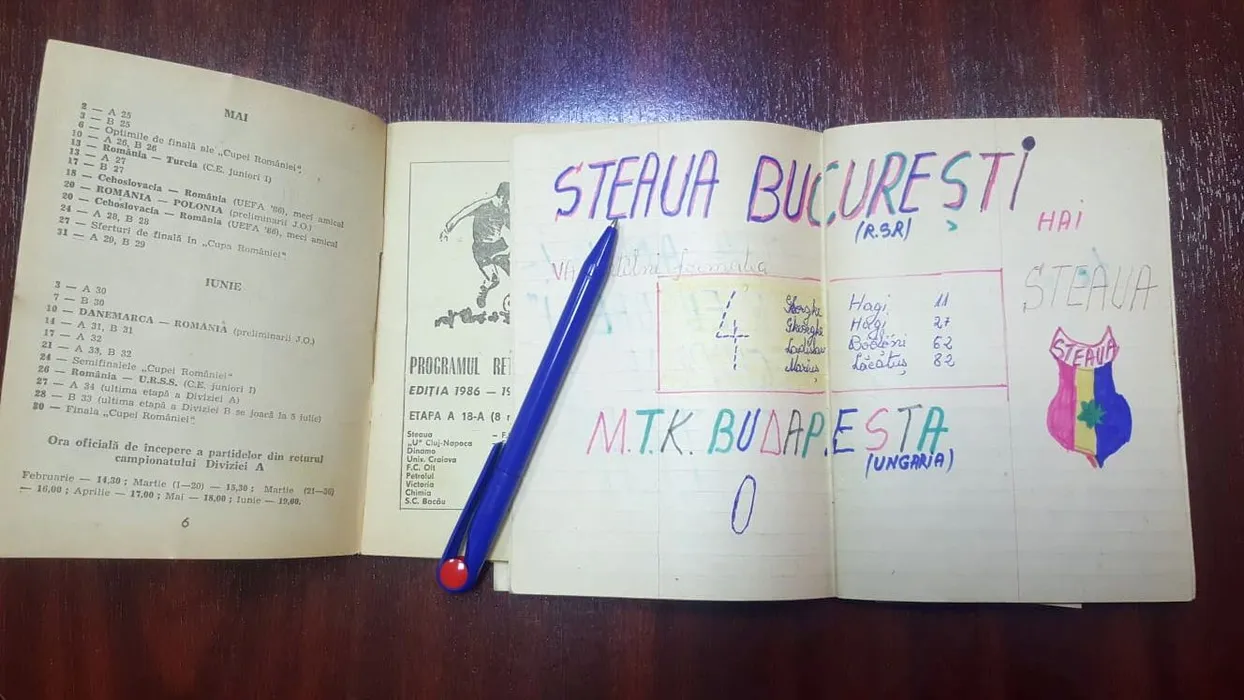 MAI
2 — A 25
3 — B 25
6 — Optimile de finală ale „Cupei României”.
10 — A 26, B 26
13 — România — Turcia (C.E. juniori I)
13 — A 27
17 — B 27
18 — Cehoslovacia — România (UEFA '86), meci amical
20 — ROMANIA — POLONIA (preliminarii J.O.)
20 — Cehoslovacia — România (UEFA '86), meci amical
24 — A 28, B 28
27 — Sferturi de finală în „Cupa României”.
31 — A 29, B 29
IUNIE
3 — A 30
7 — B 30
10 — DANEMARCA — ROMANIA (preliminarii J.O.)
14 — A 31, B 31
17 — A 32
21 — A 33, B 32
24 — Semifinalele „Cupei României”
26 — România — U.R.S.S. (C.E. juniori I)
27 — A 34 (ultima etapă a Diviziei A)
28 — B 33 (ultima etapă a Diviziei B se joară la 5 iulie)
30 — Finala „Cupei României”.
Ora oficială de începere a partidelor din returul
campionatului Diviziei A
Februarie — 14,30 ; Martie (1—20) — 15,30 ; Martie (21—36)
— 16,00 ; Aprilie — 17,00 ; Mai — 18,00 ; Iunie — 19,00.
6
PROGRAMUL RE
EDIȚIA 1986 — 19
ETAPA A 18-A (8
Steaua – F.
„U” Cluj-Napoca
Dinamo
Univ. Craiova
F.C. Olt
Petrolul
Victoria
Chimia
S.C. Bacău
STEAUA BUCUREȘTI
(R.S.R)
4
Gheorghe Hagi 11
Gheorghe Hagi 27
Ladislau Bölöni 62
Marius Lăcătuș 82
M.T.K. BUDAPESTA
(UNGARIA)
0
HAI
STEAUA
STEAUA